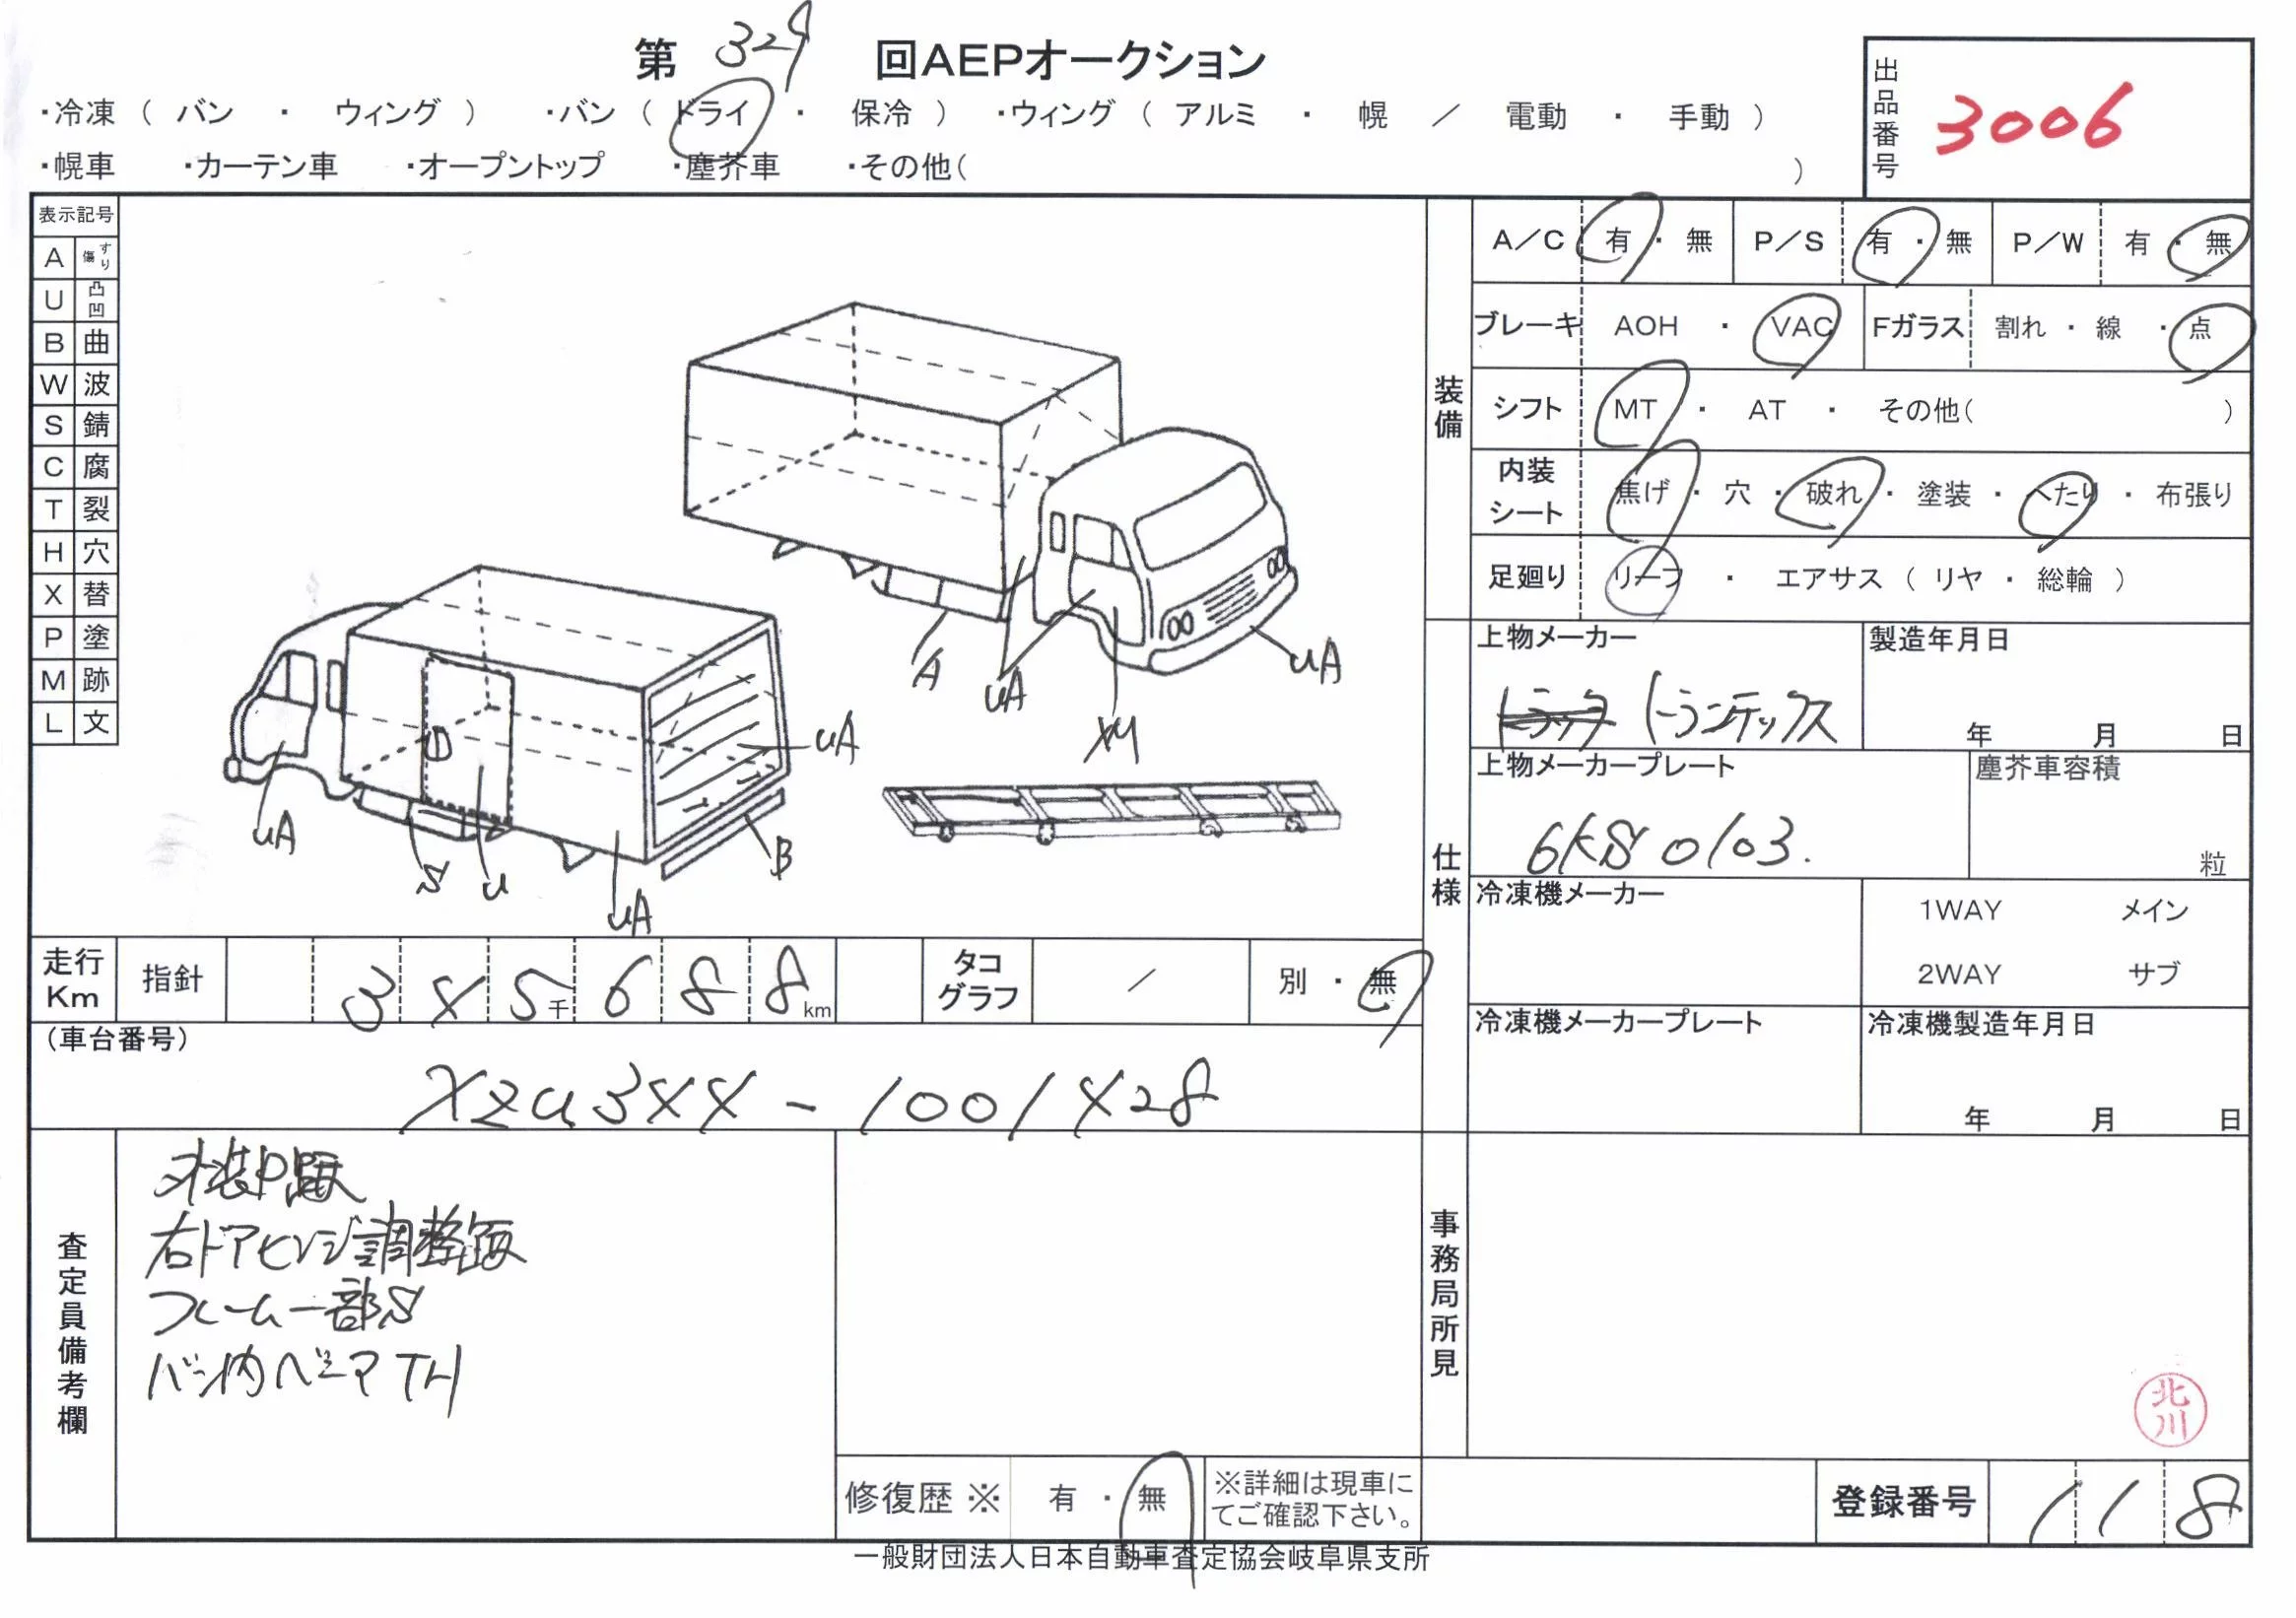 第 329 回AEPオークション
・冷凍 ( バン ・ ウィング ) ・バン ( ドライ ・ 保冷 ) ・ウィング ( アルミ ・ 幌 / 電動 ・ 手動 )
・幌車 ・カーテン車 ・オープントップ ・塵芥車 ・その他( )
出品番号 3006
表示記号
A すり傷
U 凸凹
B 曲
W 波
S 錆
C 腐
T 裂
H 穴
X 替
P 塗
M 跡
L 文
A
UA
XM
UA
UA
UA
S
U
UA
B
装備
A/C 有 ・ 無 P/S 有 ・ 無 P/W 有 ・ 無
ブレーキ AOH ・ VAC Fガラス 割れ ・ 線 ・ 点
シフト MT ・ AT ・ その他( )
内装シート 焦げ ・ 穴 ・ 破れ ・ 塗装 ・ へたり ・ 布張り
足廻り リーフ ・ エアサス ( リヤ ・ 総輪 )
仕様
上物メーカー トラック トランテックス
製造年月日 年 月 日
上物メーカープレート 6KS0103.
塵芥車容積 粒
冷凍機メーカー
1WAY メイン
2WAY サブ
冷凍機メーカープレート
冷凍機製造年月日 年 月 日
走行Km 指針 3 4 5千 6 8 8km
タコグラフ / 別 ・ 無
(車台番号)
XZU344-1001428
査定員備考欄
外装P跡
右ドアヒンジ調整無
フレーム一部S
バン内ベニアTH
修復歴 ※ 有 ・ 無
※詳細は現車にてご確認下さい。
事務局所見
北川
登録番号 118
一般財団法人日本自動車査定協会岐阜県支所